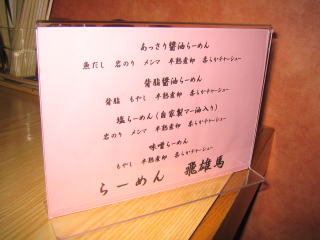 あっさり醤油らーめん
魚だし 岩のり メンマ 半熟煮卵 柔らかチャーシュー
背脂醤油らーめん
背脂 もやし 半熟煮卵 柔らかチャーシュー
塩らーめん(自家製マー油入り)
岩のり メンマ 半熟煮卵 柔らかチャーシュー
味噌らーめん
もやし 半熟煮卵 柔らかチャーシュー
らーめん 飛雄馬